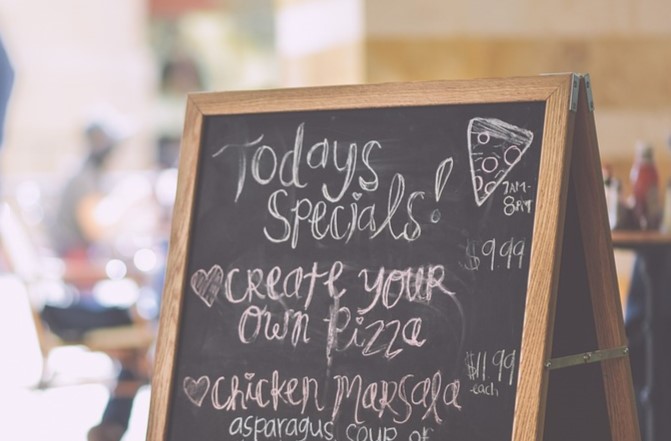 Todays
Specials!
7AM-
8PM
$9.99
Create your
own Pizza
$11.99
each
Chicken Marsala
asparagus, soup of